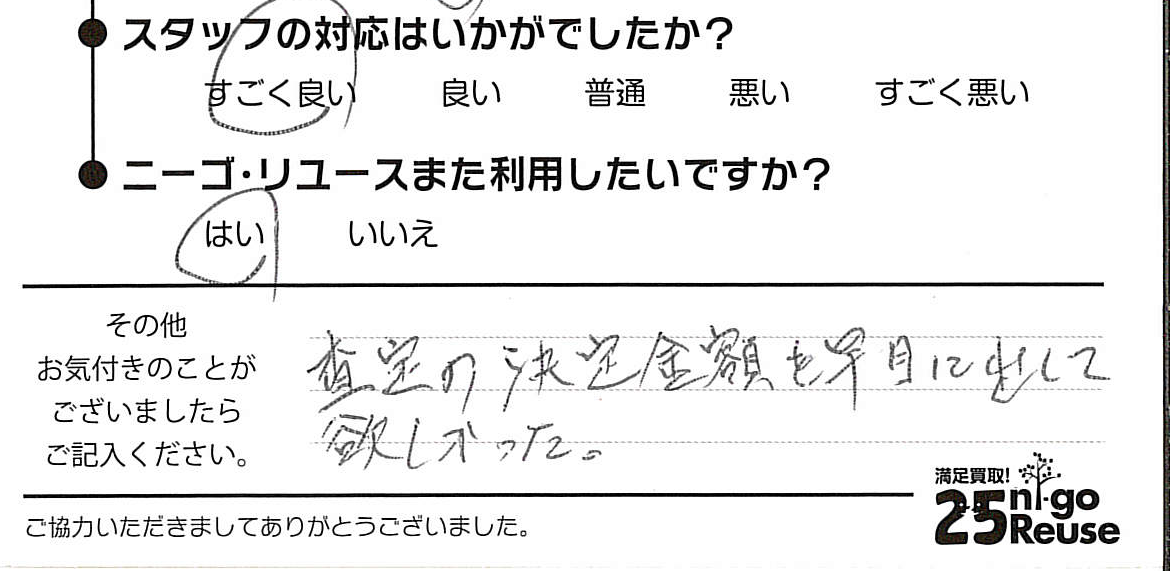 ● スタッフの対応はいかがでしたか？
すごく良い 良い 普通 悪い すごく悪い
● ニーゴ・リユースまた利用したいですか？
はい いいえ
その他
お気付きのことが
ございましたら
ご記入ください。
査定の決定金額を早目に出して
欲しかった。
満足買取!
25 ni-go
Reuse
ご協力いただきましてありがとうございました。